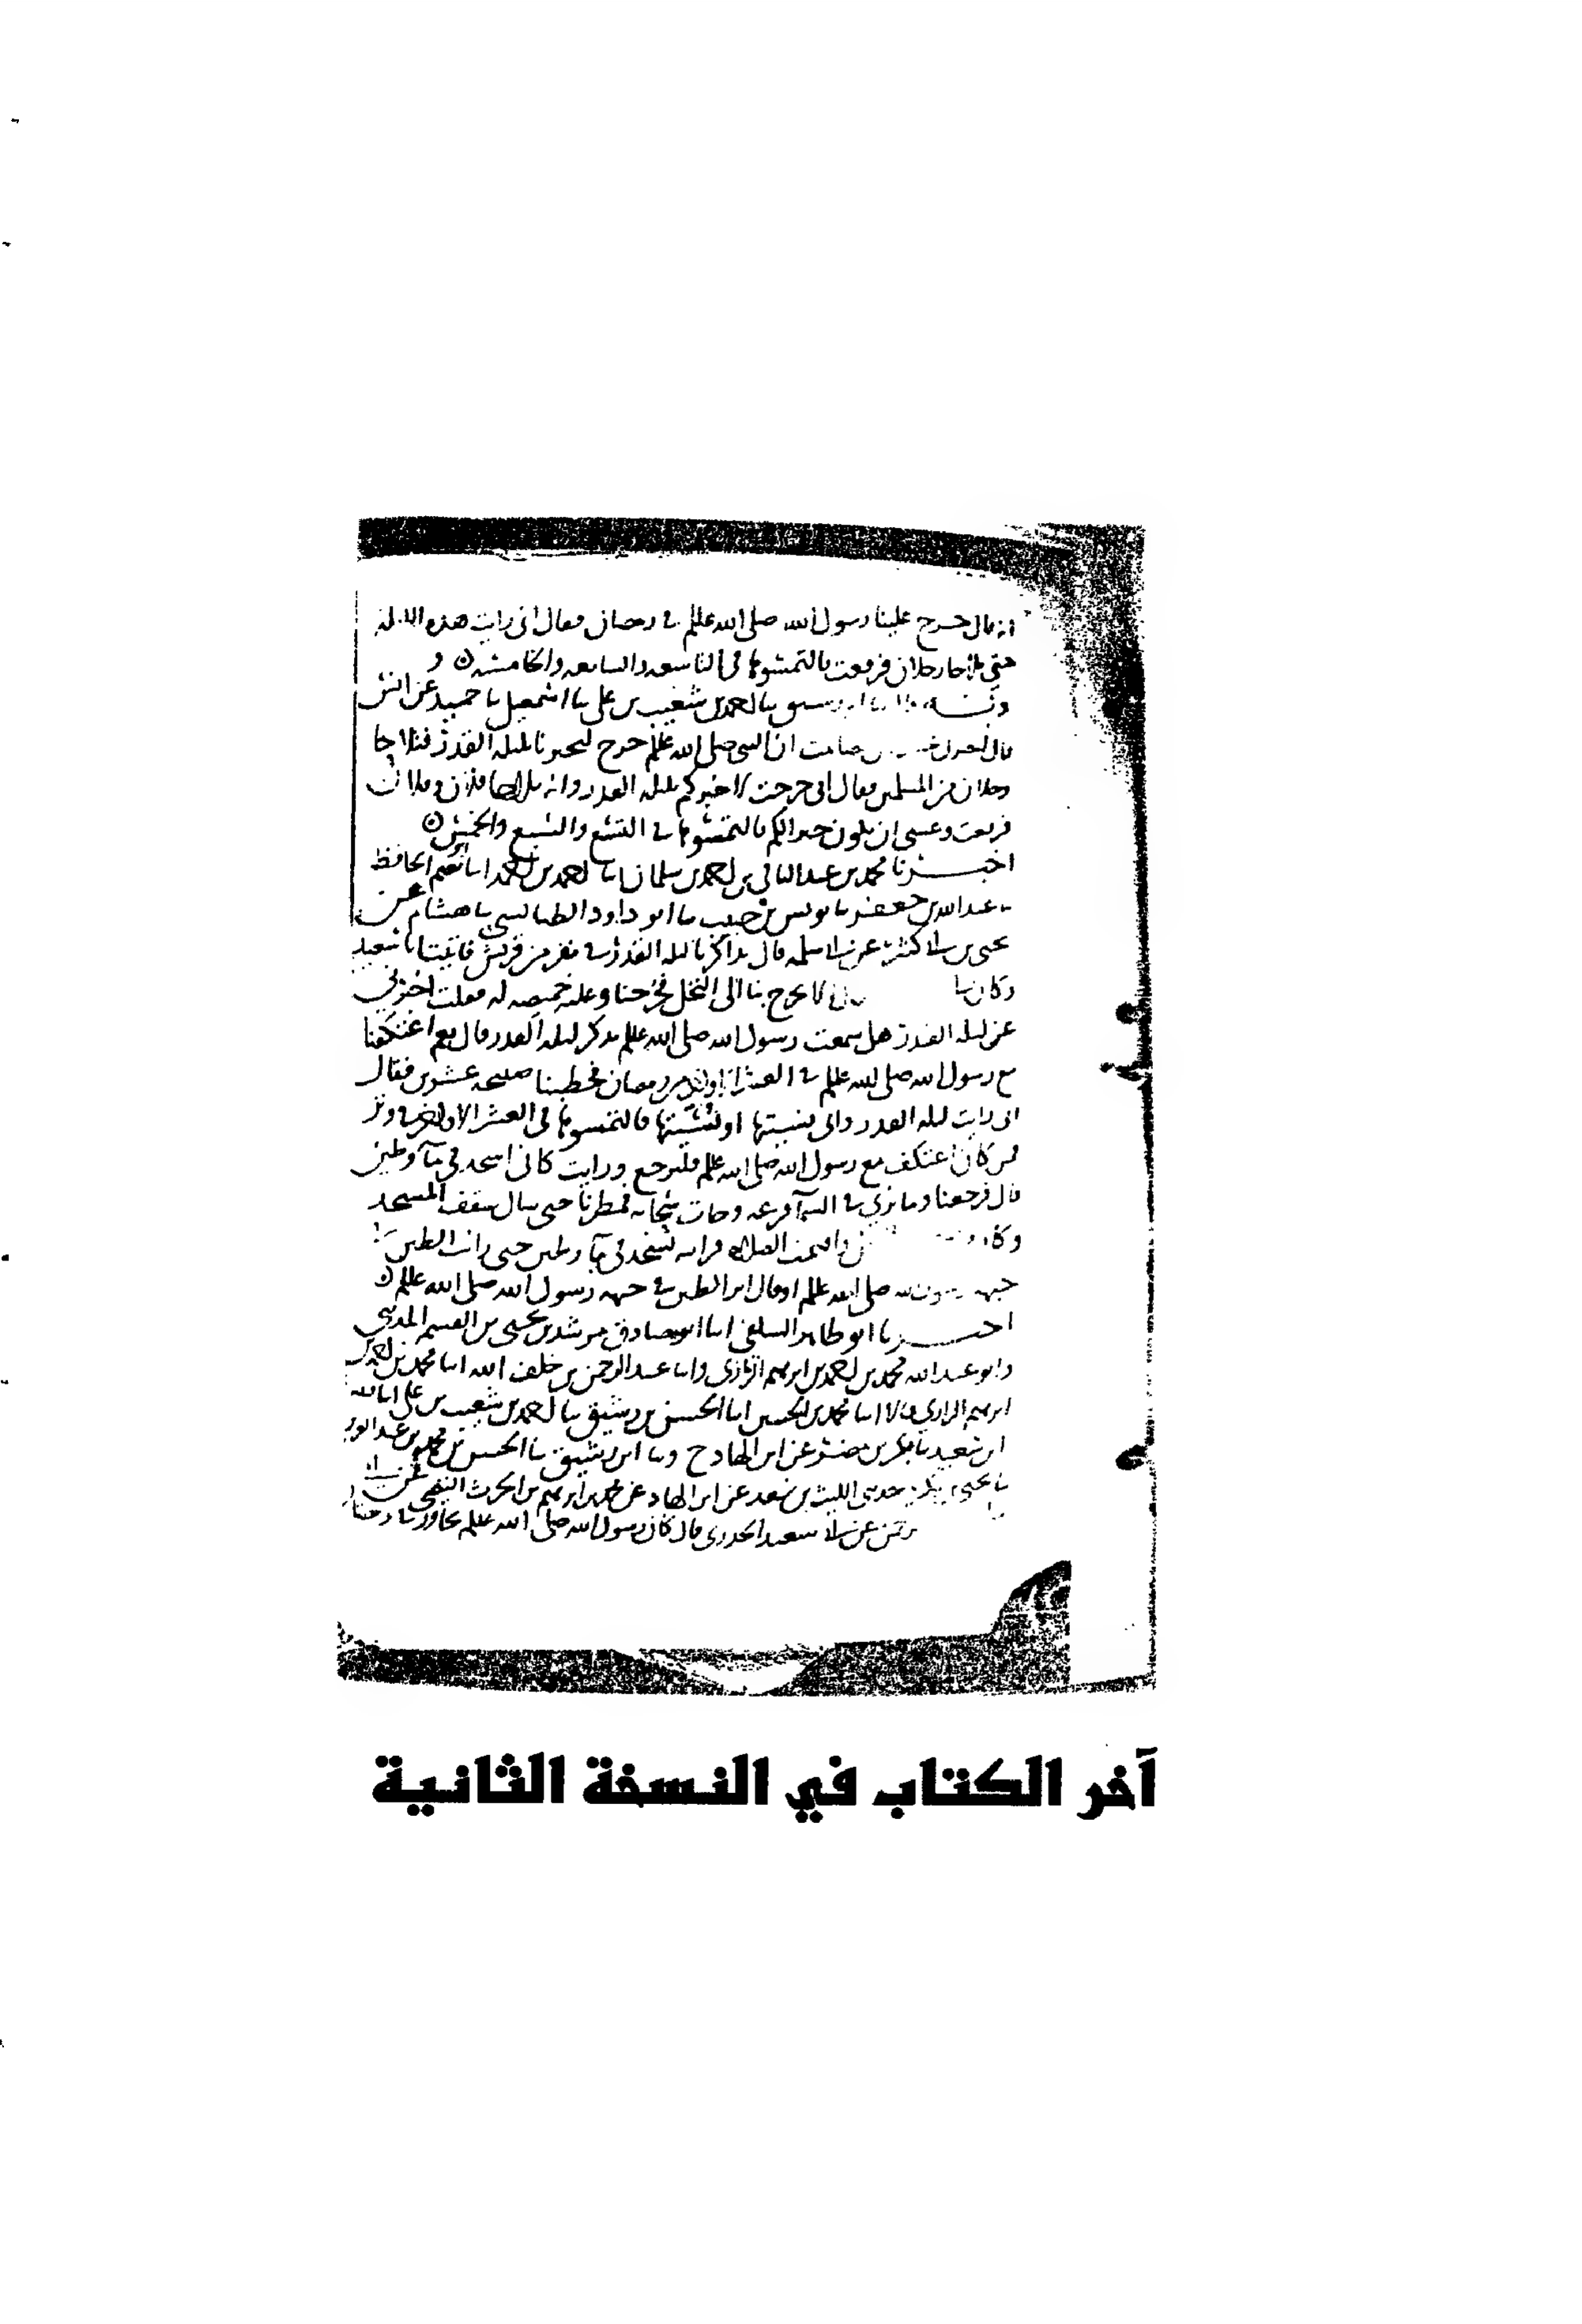 انه قال خرج علينا رسول الله صلى الله عليه في رمضان فقال اني رايت هذه الليله
حتى تلاحا رجلان فرفعت فالتمسوها في التاسعه والسابعه والخامسه
بن شعيب بن علي نا اسمعيل نا حميد عن انس
صامت ان النبي صلى الله عليه خرج ليخبرنا بليله القدر فتلاحا
رجلان من المسلمين فقال اني خرجت لاخبركم بليله القدر وانه تلاحا فلان وفلان
فرفعت وعسى ان يكون خيرا لكم فالتمسوها في التسع والسبع والخمس
اخبرنا محمد بن عبد الباقي بن احمد بن سلمان انا احمد بن احمد انا ابو نعيم الحافظ
نا عبد الله بن جعفر نا يونس بن حبيب نا ابو داود الطيالسي نا هشام عن
يحيى بن ابي كثير عن ابي سلمه قال تذاكرنا ليله القدر في نفر من قريش فاتيت ابا سعيد
وكان لي الا تخرج بنا الى النخل فخرجنا وعليه خميصه له فقلت اخبرني
عن ليله القدر هل سمعت رسول الله صلى الله عليه يذكر ليله القدر قال نعم اعتكفنا
مع رسول الله صلى الله عليه في العشر من رمضان فخطبنا صبيحه عشرين فقال
اني رايت ليله القدر واني نسيتها او نسيتها فالتمسوها في العشر الاواخر في وتر
فمن كان اعتكف مع رسول الله صلى الله عليه فليرجع ورايت كاني اسجد في مآ وطين
قال فرجعنا وما نرى في السمآ قزعه وجات سحابه فمطرنا حتى سال سقف المسجد
واقيمت الصلاه فرايته يسجد في مآ وطين حتى رايت الطين
جبهه صلى الله عليه او قال اثر الطين في جبهه رسول الله صلى الله عليه
اخبرنا ابو طاهر السلفي انا ابو صادق مرشد بن يحيى بن القسم المديني
وابو عبد الله محمد بن احمد بن ابرهيم الرازي وانا عبد الرحمن بن خلف الله انا محمد بن احمد بن
ابرهيم الرازي قالا انا محمد بن الحسين انا الحسن بن رشيق نا احمد بن شعيب بن علي
ابن سعيد نا بكر بن مضر عن ابن الهاد ح ونا ابن رشيق نا الحسن بن محمد بن عبد
نا يحيى بن بكير حدثني الليث بن سعد عن ابن الهاد عن محمد بن ابرهيم بن الحرث التيمي عن ابي
عن ابي سعيد الخدري قال كان رسول الله صلى الله عليه يجاور
آخر الكتاب في النسخة الثانية